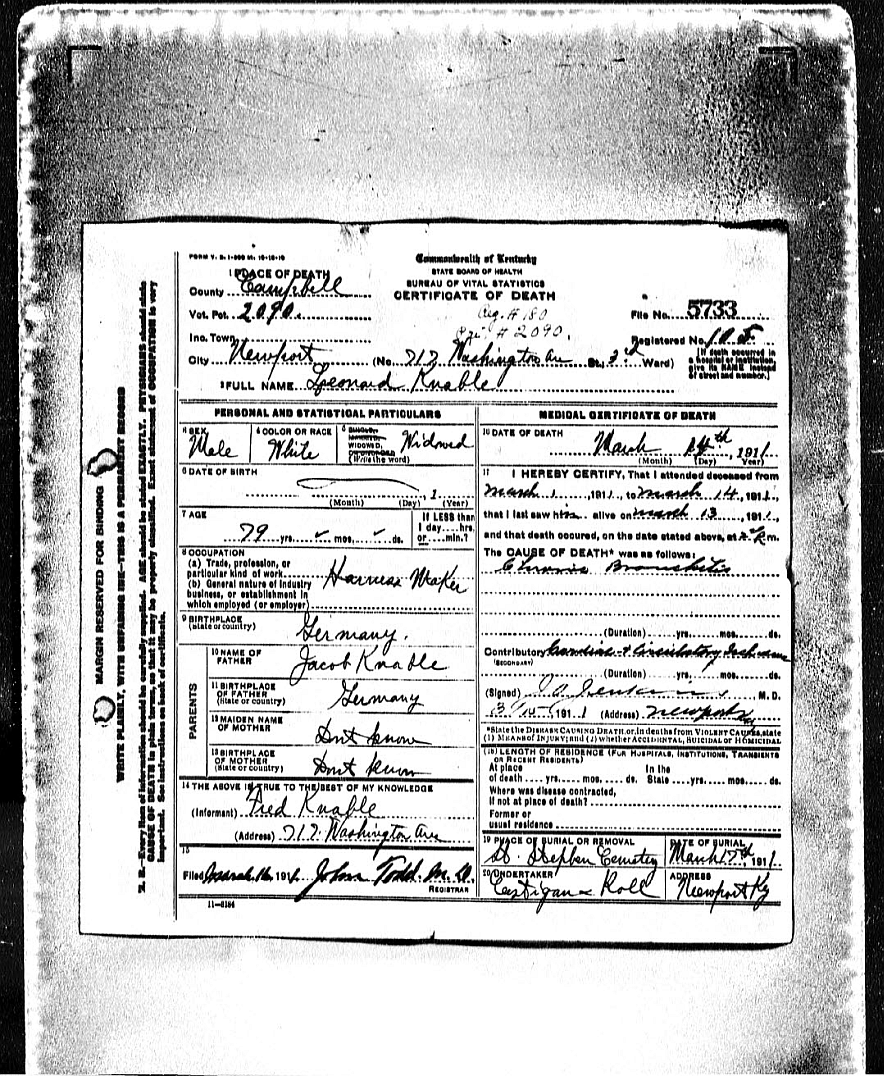 FORM V. S. 1-
Commonwealth of Kentucky
STATE BOARD OF HEALTH
BUREAU OF VITAL STATISTICS
CERTIFICATE OF DEATH
1 PLACE OF DEATH
County Campbell
Vot. Pct. 2090.
Reg. # 180
# 2090.
File No. 5733
Inc. Town
Registered No.
City Newport (No. 717 Washington Av St., 3rd Ward)
[If death occurred in a hospital or institution, give its NAME instead of street and number.]
2 FULL NAME Leonard Knable
PERSONAL AND STATISTICAL PARTICULARS
3 SEX Male
4 COLOR OR RACE White
5 SINGLE, MARRIED, WIDOWED, OR DIVORCED (Write the word) Widowed
6 DATE OF BIRTH
(Month) (Day) , 1 (Year)
7 AGE
79 yrs. mos. ds.
If LESS than 1 day, hrs. or min.?
8 OCCUPATION
(a) Trade, profession, or
particular kind of work Harness Maker
(b) General nature of industry
business, or establishment in
which employed (or employer)
9 BIRTHPLACE
(State or country) Germany.
PARENTS
10 NAME OF
FATHER Jacob Knable
11 BIRTHPLACE
OF FATHER
(State or country) Germany
12 MAIDEN NAME
OF MOTHER Dont know
13 BIRTHPLACE
OF MOTHER
(State or country) Dont know
14 THE ABOVE IS TRUE TO THE BEST OF MY KNOWLEDGE
(Informant) Fred Knable
(Address) 717 Washington Ave
15
Filed March 16, 191 John Todd. M. D.
REGISTRAR
11-3184
MEDICAL CERTIFICATE OF DEATH
16 DATE OF DEATH
March 14th, 1911
(Month) (Day) (Year)
17 I HEREBY CERTIFY, That I attended deceased from
March 1, 1911, to March 14, 1911,
that I last saw him alive on March 13, 1911,
and that death occured, on the date stated above, at m.
The CAUSE OF DEATH* was as follows:
Chronic Bronchitis
(Duration) yrs. mos. ds.
Contributory Cardiac + Circulatory
(SECONDARY)
(Duration) yrs. mos. ds.
(Signed) M. D.
3/15 1911 (Address) Newport Ky
*State the DISEASE CAUSING DEATH, or, in deaths from VIOLENT CAUSES, state
(1) MEANS OF INJURY; and (2) whether ACCIDENTAL, SUICIDAL or HOMICIDAL
18 LENGTH OF RESIDENCE (FOR HOSPITALS, INSTITUTIONS, TRANSIENTS
OR RECENT RESIDENTS)
At place In the
of death yrs. mos. ds. State yrs. mos. ds.
Where was disease contracted,
if not at place of death?
Former or
usual residence
19 PLACE OF BURIAL OR REMOVAL
St. Stephen Cemetery
DATE OF BURIAL
March 17th, 1911
20 UNDERTAKER
Costigan & Roll
ADDRESS
Newport Ky
MARGIN RESERVED FOR BINDING
WRITE PLAINLY, WITH UNFADING INK—THIS IS A PERMANENT RECORD
N. B.—Every item of information should be carefully supplied. AGE should be stated EXACTLY. PHYSICIANS should state
CAUSE OF DEATH in plain terms, so that it may be properly classified. Exact statement of OCCUPATION is very
important. See instructions on back of certificate.